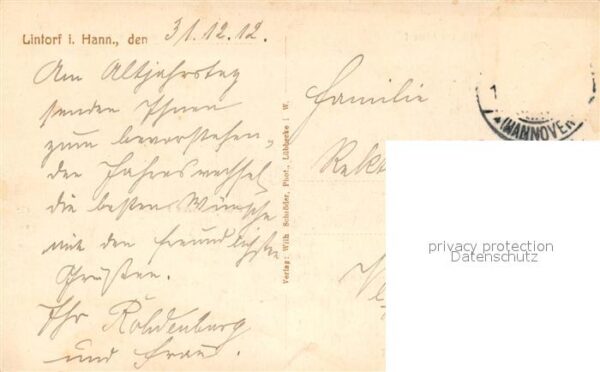 Lintorf i. Hann., den 31.12.12.
Am Altjahrstag
senden Ihnen
zum bevorstehen-
den Jahreswechsel
die besten Wünsche
mit den freundlichsten
Grüßen.
Ihr Rohdenburg
und Frau.
Verlag: Wilh Schröder, Phot., Lübbecke i W.
Familie
Rekt
(HANNOVER
privacy protection
Datenschutz